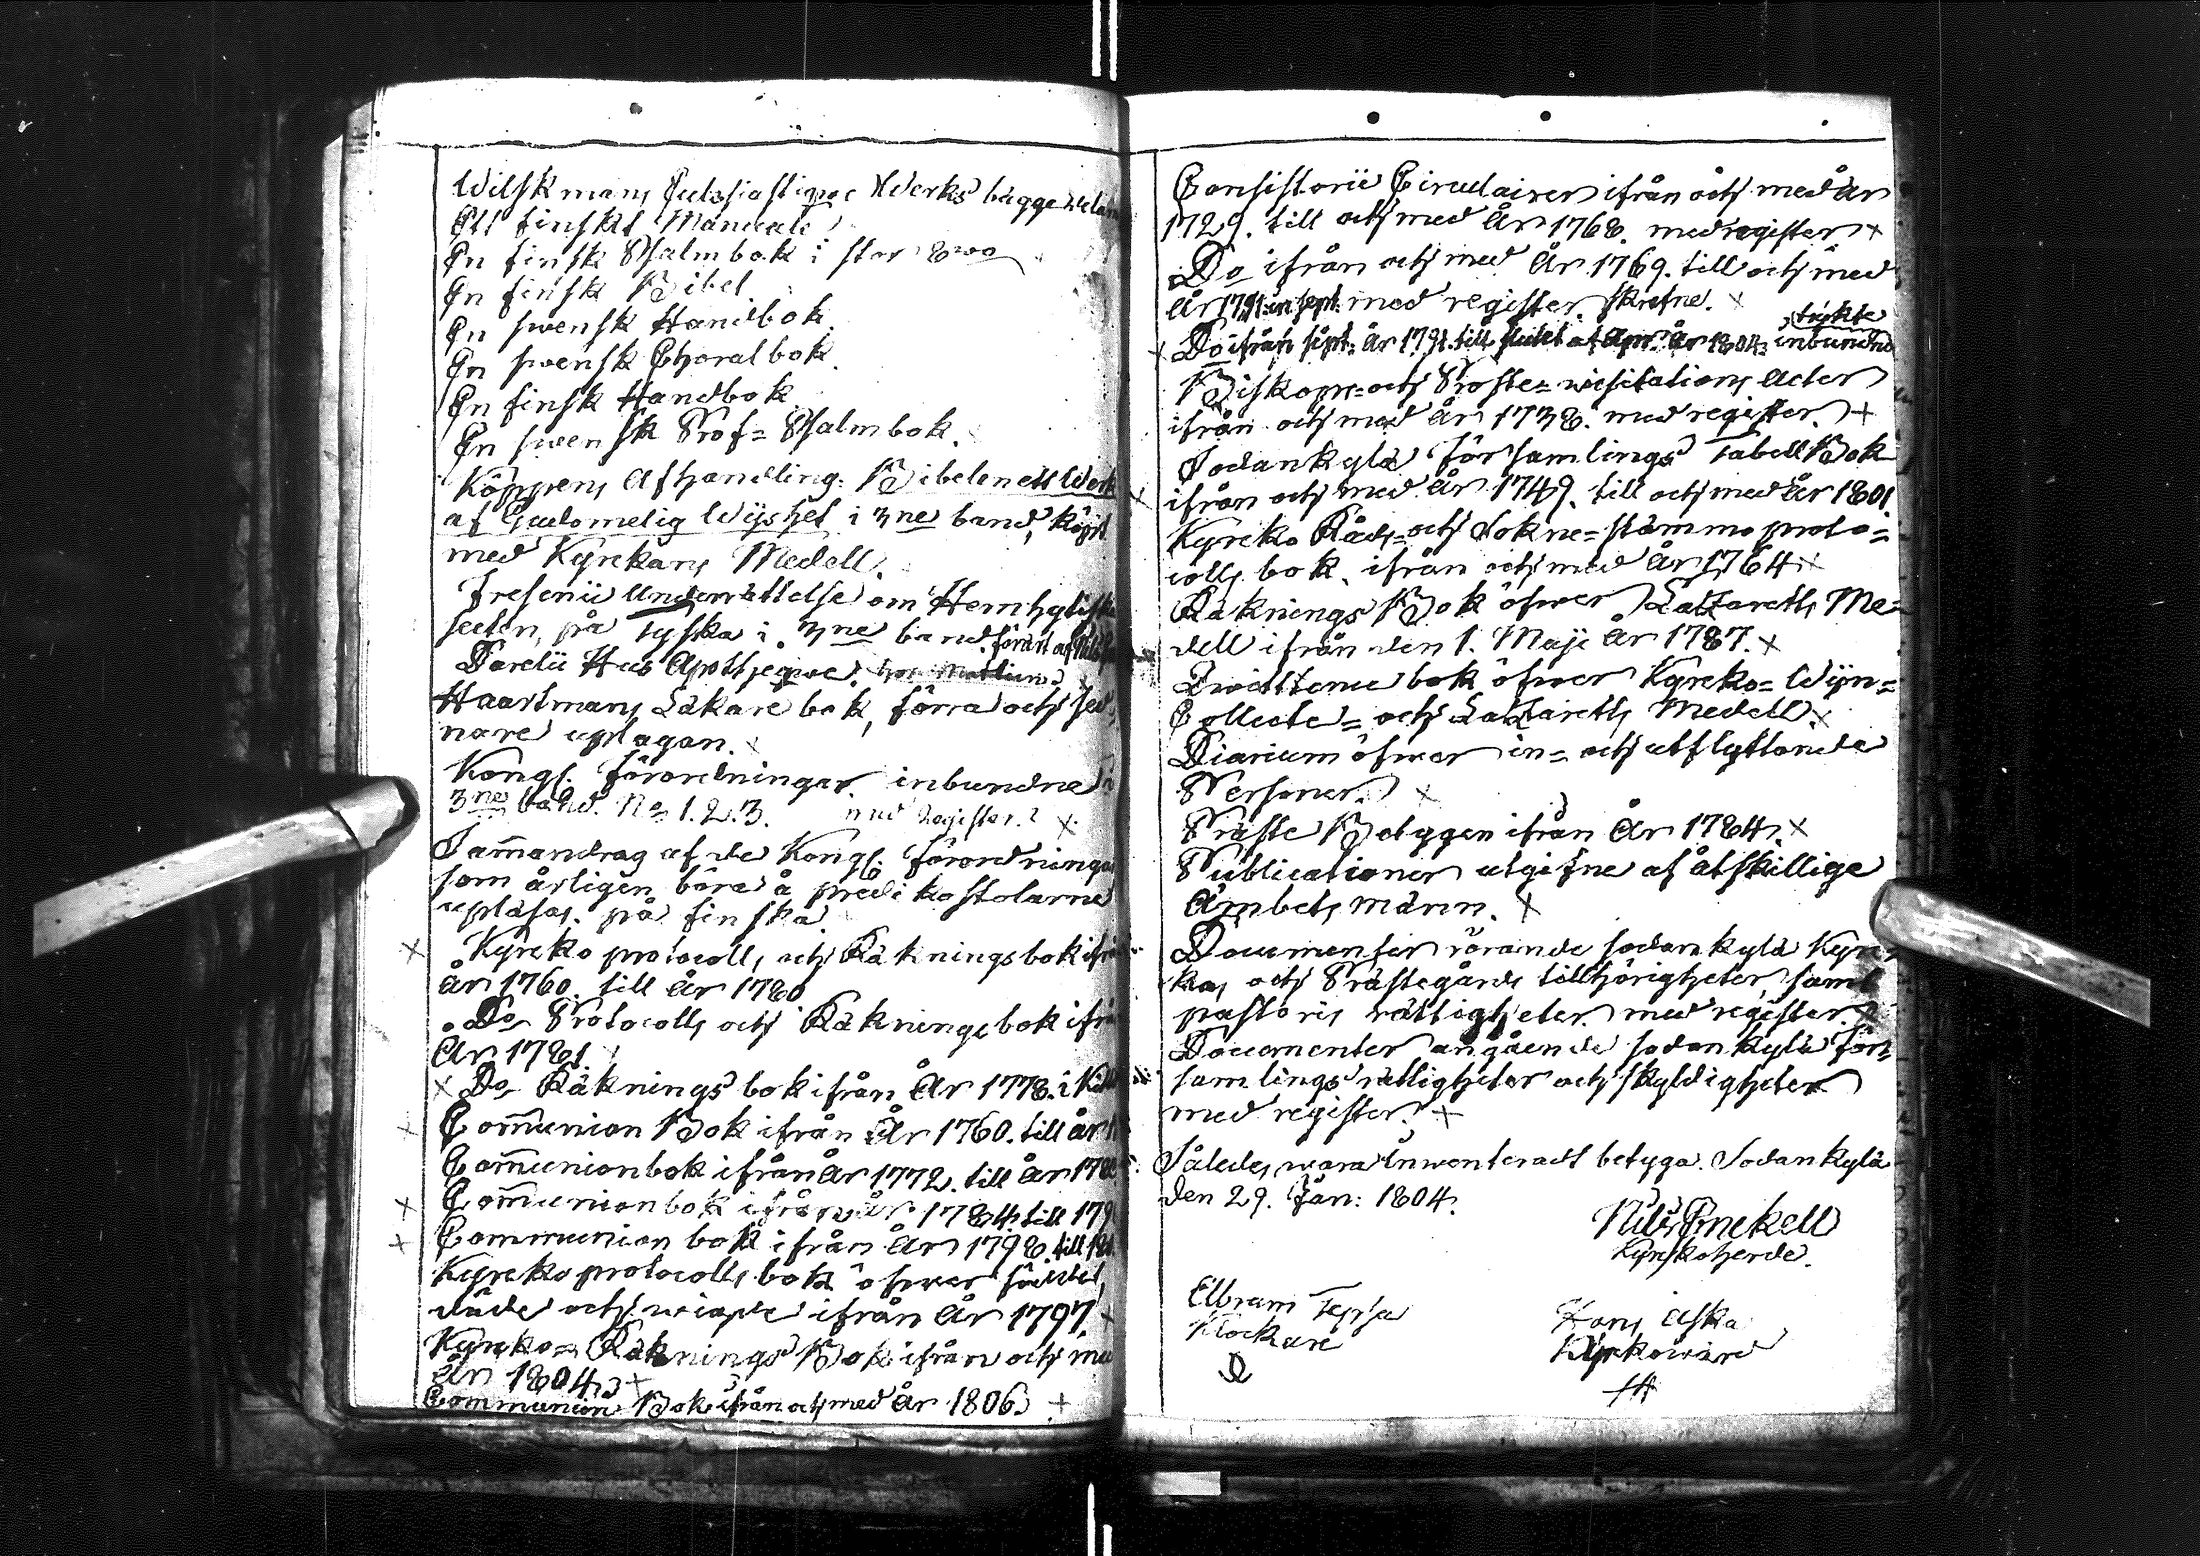 Wilskmans Eclesiastique Werks bägge delar
Ett finskt Manuale
En finsk Psalmbok i stor 8voo
En finsk Bibel
En swensk Handbok.
En swensk Choralbok.
En finsk Handbok
En swensk Prof=Psalmbok.
Köppens Afhandling: Bibelen ett Werk
af Gudomelig Wijshet i 3ne band, köpt
med Kyrckans Medell.
Fresenii Underrättelse om Hernhytiska
secten, på Tyska i 3ne band.
Darelii Hus Apotheque.
Haartmans Läkare bok, förra och sed-
nare uplagan. x
Kongl. förordningar inbundne i
3ne band. No 1.2.3. med Register. x
Sam̄andrag af de Kongl. förordningar
som årligen böra å predikostolarne
uplasas på finska.
x Kyrcko protocolls och Räkningsbok ifrån
år 1760. till år 1780
Do Protocolls och Räkningsbok ifrån
År 1781.
x Do Räknings bok ifrån År 1778. i
Com̄union Bok ifrån År 1760. till år
Com̄unionbok ifrån År 1772. till år 178
x Com̄unionbok ifrån år 1784. till 179
x Communion bok ifrån År 1798 till 18
Kyrcko protocolls bok öfwer födde,
döde och wigde ifrån År 1797. x
Kyrcko Räknings Bok ifrån och med
År 1804. x
Communion Bok ifrån och med År 1806. x
Consistorii Circulairer ifrån och med år
1729. till och med År 1768. med register x
Do ifrån och med År 1769. till och med
år 1791. in sept. med register. skrefne. x
tryckte
x Do ifrån sept. år 1791. till slutet af Apr. år 1804. inbundne
Biskops=och Proste=wisitations Acter
ifrån och med år 1738. med register. x
Sodankylä Församlings Tabell Bok
ifrån och med år 1749. till och med år 1801.
Kyrcko Råds=och Sokne=stämmo proto=
colls bok. ifrån och med år 1764 x
Räknings Bok öfwer Lazareths Me=
dell ifrån den 1. Maji år 1787. x
Quittence bok öfwer Kyrcko=Wijn=
Collecte=och Lazareths Medell. x
Diarium öfwer in=och utflyttande
Personer. x
Präste Betygen ifrån År 1784. x
Publicationer utgifne af åtskillige
Ämbets män. x
Documenter rörande Sodankylä Kyrc=
kas och Prästegårds tillhörigheter, samt
pastoris rättigheter. med register. x
Documenter angående Sodankylä för=
samlings rättigheter och skyldigheter
med register. x
Således wara Inwenteradt betyga. Sodankylä
den 29. Jan: 1804.
Nils Enckell
Kyrckoherde.
Abram Tepsa
Klockare
Hans Aska
Kyrkowärd